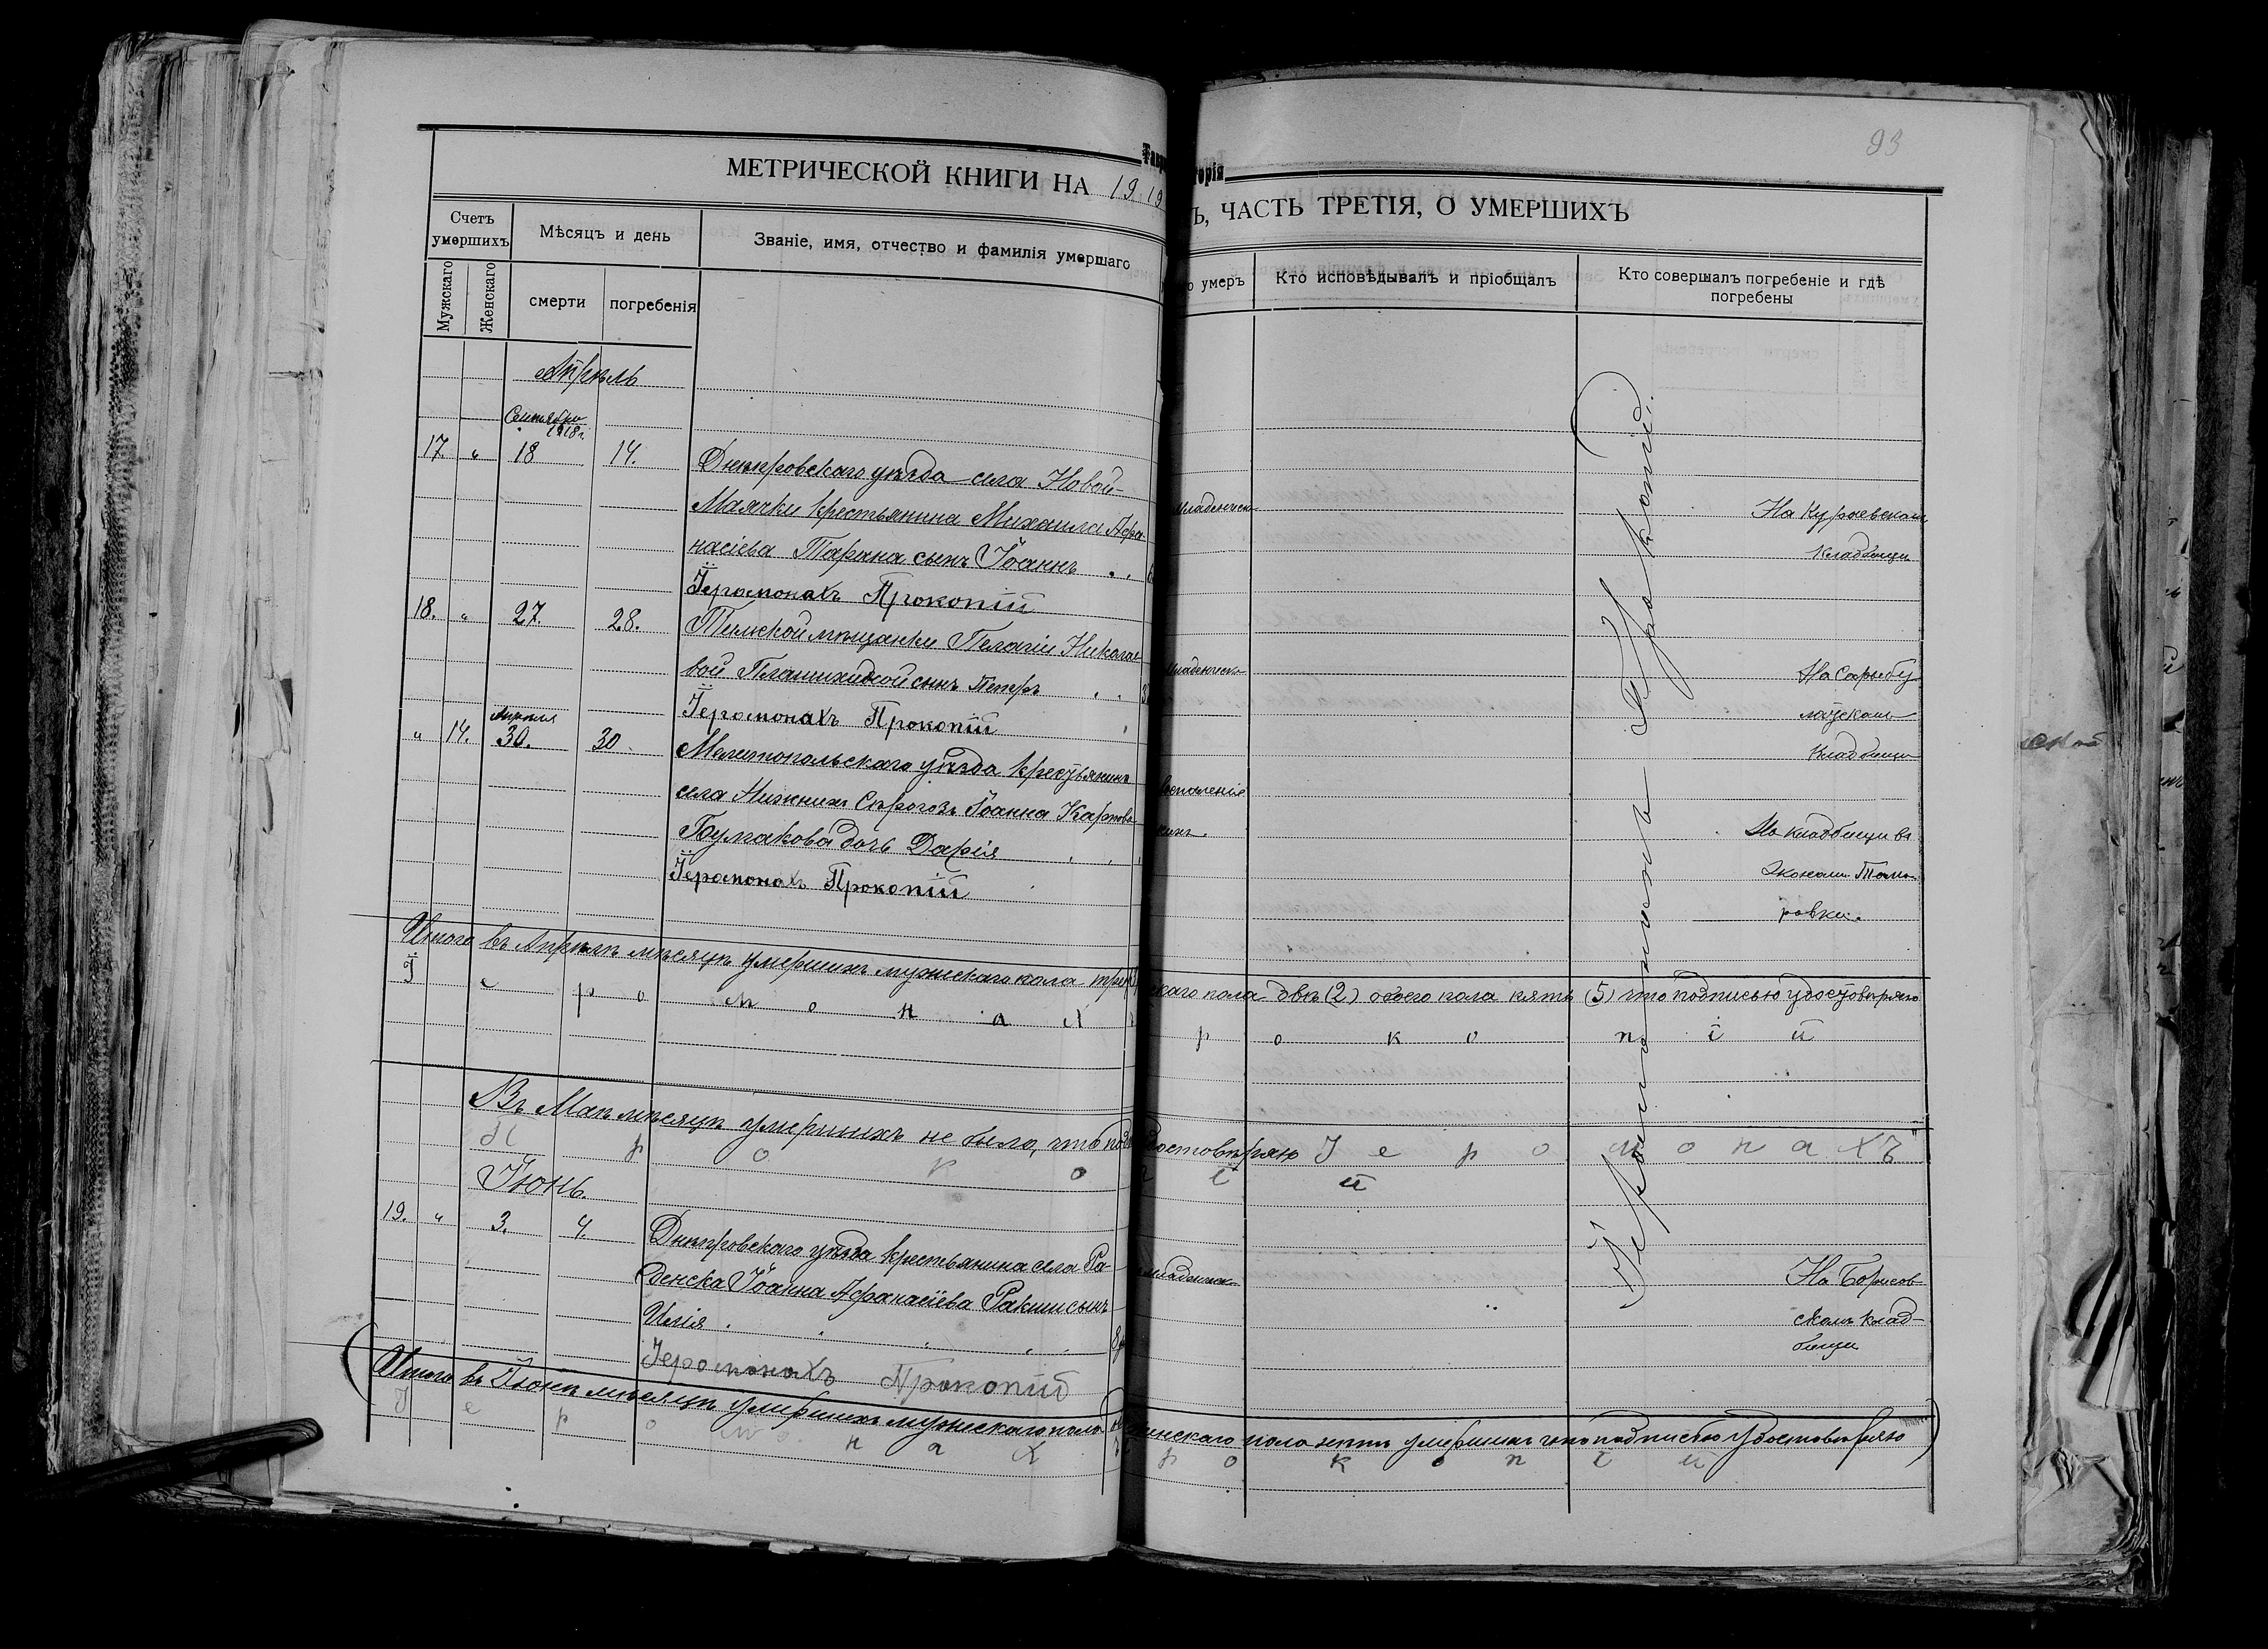 93
МЕТРИЧЕСКОЙ КНИГИ НА 1919
Ъ, ЧАСТЬ ТРЕТІЯ, О УМЕРШИХЪ
Счетъ умершихъ
Мѣсяцъ и день
Званіе, имя, отчество и фамилія умершаго
о умеръ
Кто исповѣдывалъ и пріобщалъ
Кто совершалъ погребеніе и гдѣ погребены
Мужскаго
Женскаго
смерти
погребенія
Апрѣль
Сентября
1918 г.
17. " 18 14. Днѣпровскаго уѣзда села Новой-
Маячки крестьянина Михаила Афа-
насіева Тарана сынъ Іоаннъ
Іеромонахъ Прокопій
Младенческ
кладбищи
18. " 27. 28. мѣщанки Пелагіи Николае
вой сынъ Петръ
Іеромонахъ Прокопій
Младенческ
На Сарыбу
кладбищи
Апрѣля
" 14. 30. 30. Мелитопольскаго уѣзда крестьянина
села Нижнихъ Сѣрогозъ Іоанна Карпова
дочь Дарія
Іеромонахъ Прокопій
воспаленіе
На кладбищи въ
ровки.
Итого въ Апрѣлѣ мѣсяцѣ умершихъ мужскаго пола три
скаго пола двѣ (2) обоего пола пять (5) что подписью удостовѣряю
І е р о м о н а х
р о к о п і й
Въ Маѣ мѣсяцѣ умершихъ не было, что под
достовѣряю І е р о м о н а х ъ
П р о к о п і й
Іюнь.
19. " 3. 4. Днѣпровскаго уѣзда крестьянина села Ра-
денска Іоанна Афанасіева Ракши сынъ
Илія
Іеромонахъ Прокопій
младенческ
На Борисов
скомъ клад-
бищи
Итого въ Іюнѣ мѣсяцѣ умершихъ мужскаго пола
женскаго пола нѣтъ умершихъ что подписью удостовѣряю
І е р о м о н а х
р о к о п і й
Іеромонахъ Прокопій.